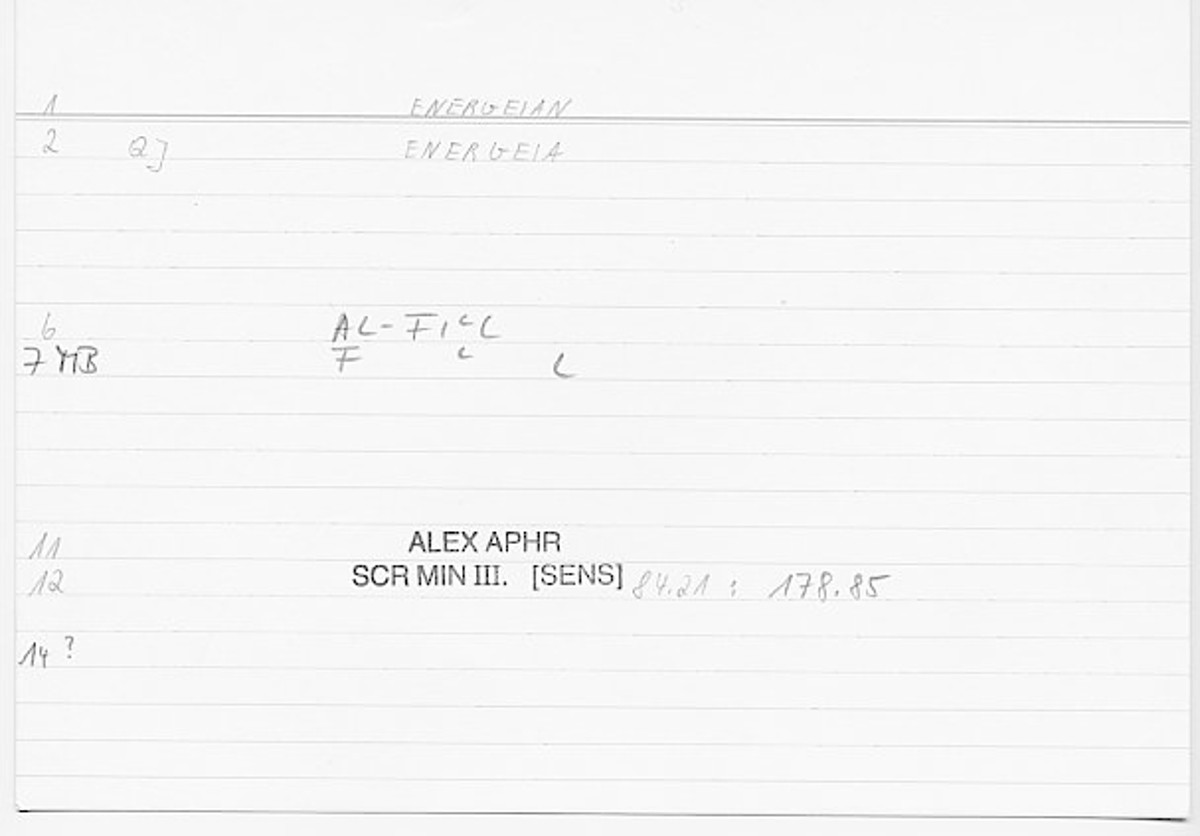 1 ENERGEIAN
2 Q] ENERGEIA
6 AL-FIʿL
7 MB F ʿ L
11 ALEX APHR
12 SCR MIN III. [SENS] 84.21 : 178.85
14 ?